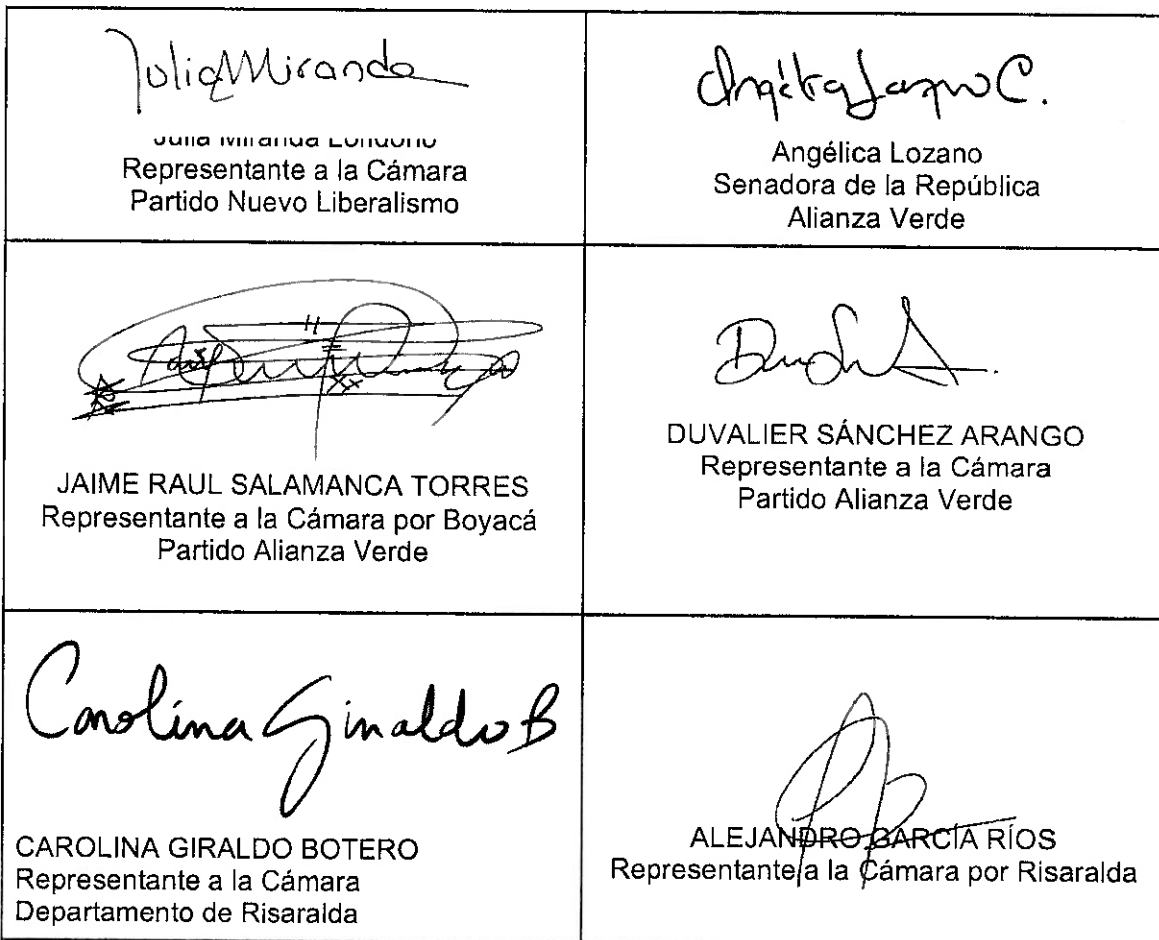 Julia Miranda
Julia Miranda Londoño
Representante a la Cámara
Partido Nuevo Liberalismo
Angélica Lozano C.
Angélica Lozano
Senadora de la República
Alianza Verde
JAIME RAUL SALAMANCA TORRES
Representante a la Cámara por Boyacá
Partido Alianza Verde
DUVALIER SÁNCHEZ ARANGO
Representante a la Cámara
Partido Alianza Verde
Carolina Giraldo B
CAROLINA GIRALDO BOTERO
Representante a la Cámara
Departamento de Risaralda
ALEJANDRO GARCÍA RÍOS
Representante a la Cámara por Risaralda